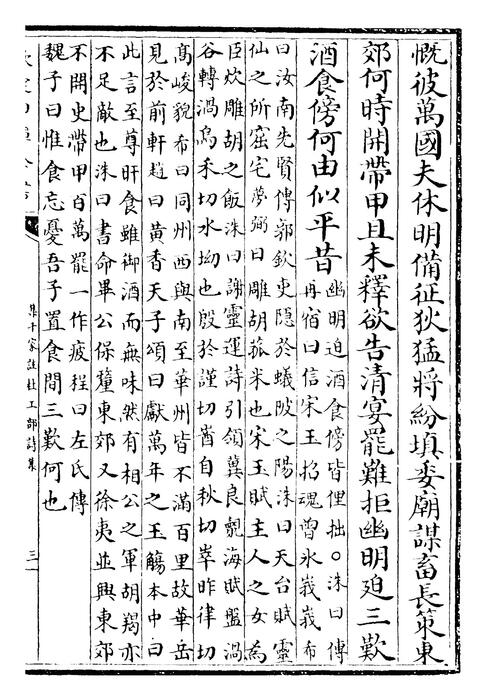 慨彼萬國夫休明備征狄猛將紛填委廟謀畜長策東
郊何時開帶甲且未釋欲告清宴罷難拒幽明迫三歎
酒食傍何由似平昔
幽明迫酒食傍皆俚拙○洙曰傳
再宿曰信宋玉招魂曾氷峩峩布
曰汝南先賢傳郭欽吏隐於蟻陂之陽洙曰天台賦靈
仙之所窟宅夢弼曰雕胡菰米也宋玉賦主人之女為
臣炊雕胡之飯洙曰謝靈運詩引領冀良覿海賦盤渦
谷轉渦烏禾切水坳也殷於謹切酋自秋切崒昨律切
髙峻貌布曰同州西與南至華州皆不滿百里故華岳
見於前軒趙曰黄香天子頌曰獻萬年之玉觴本中曰
此言至尊旰食雖御酒而無味然有相公之軍胡羯亦
不足敵也洙曰書命畢公保釐東郊又徐夷並興東郊
不開史帶甲百萬罷一作疲程曰左氏傳
魏子曰惟食忘憂吾子置食間三歎何也
集千家註杜工部詩集
三